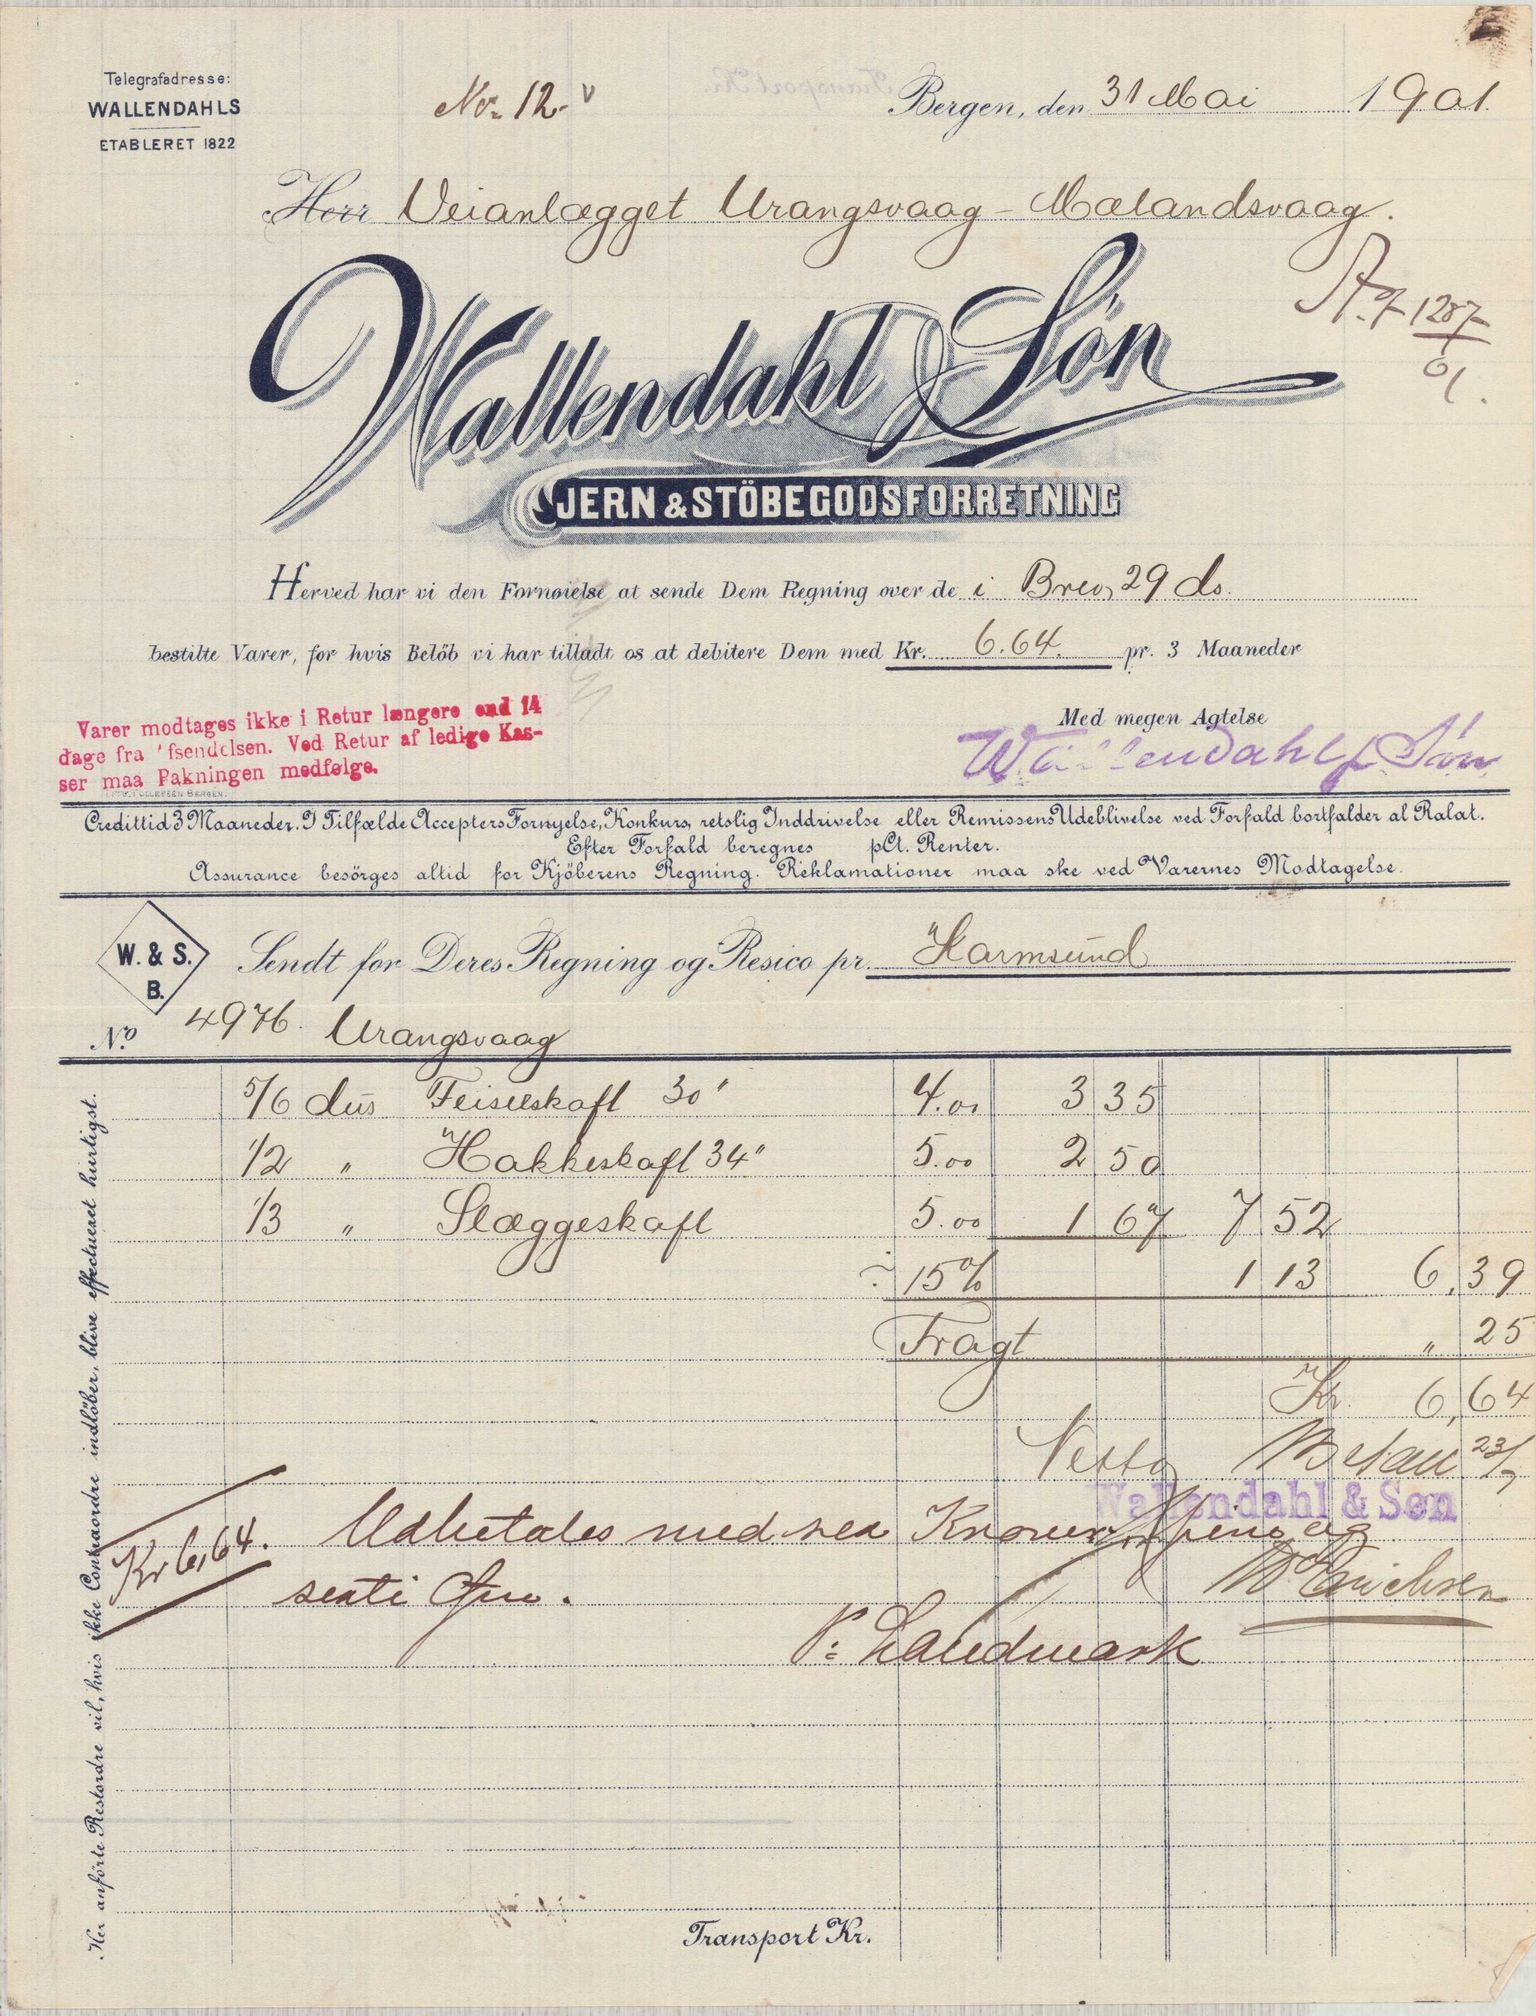 Telegrafadresse:
WALLENDAHLS
ETABLERET 1822
No. 12. v
Bergen, den 31 Mai 1901.
Herr Veianlægget Urangsvaag - Mælandsvaag.
A. 1287
01.
Wallendahl & Søn
JERN & STÖBEGODSFORRETNING
Herved har vi den Fornøielse at sende Dem Regning over de i Brev 29 ds.
bestilte Varer, for hvis Belöb vi har tilladt os at debitere Dem med Kr. 6.64. pr. 3 Maaneder
Med megen Agtelse
Wallendahl & Søn
Varer modtages ikke i Retur længere end 14
dage fra 'fsendelsen. Ved Retur af ledige Kas-
ser maa Pakningen medfølge.
Credittid 3 Maaneder. I Tilfælde Accepters Fornyelse, Konkurs, retslig Inddrivelse eller Remissens Udeblivelse ved Forfald bortfalder al Ralat.
Efter Forfald beregnes pCt. Renter.
Assurance besörges altid for Kjöberens Regning. Reklamationer maa ske ved Varernes Modtagelse.
W. & S.
B.
Sendt for Deres Regning og Resico pr. Karmsund
No 4976. Urangsvaag
5/6 dus Feiselskaft 30" 4.00 3 35
1/2 " Hakkeskaft 34" 5.00 2 50
1/3 " Slæggeskaft 5.00 1 67 7 52
÷ 15% 1 13 6,39
Fragt " 25
Kr. 6,64
Netto Betalt 23/7
Wallendahl & Søn
Kr 6,64. Udbetales med sex Kroner og
sexti fire.
W Erichsen
P. Landmark
Her anförte Restordre vil, hvis ikke Contraordre indlöber, blive effectueret hurtigst.
Transport Kr.